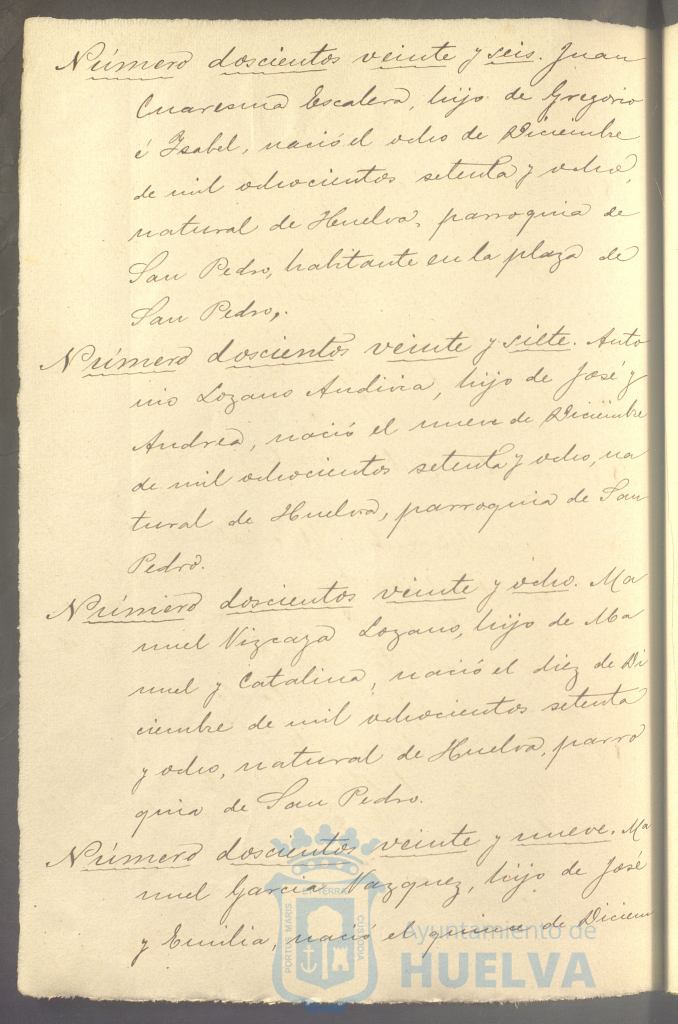 Número doscientos veinte y seis. Juan
Cuaresma Escalera, hijo de Gregorio
é Isabel, nació el ocho de Diciembre
de mil ochocientos setenta y ocho,
natural de Huelva, parroquia de
San Pedro, habitante en la plaza de
San Pedro,.
Número doscientos veinte y siete. Anto
nio Lozano Andivia, hijo de José y
Andrea, nació el nueve de Diciembre
de mil ochocientos setenta y ocho, na
tural de Huelva, parroquia de San
Pedro.
Número doscientos veinte y ocho. Ma
nuel Vizcaya Lozano, hijo de Ma
nuel y Catalina, nació el diez de Di
ciembre de mil ochocientos setenta
y ocho, natural de Huelva, parro
quia de San Pedro.
Número doscientos veinte y nueve. Ma
nuel Garcia Vazquez, hijo de José
y Emilia, nació el quince de Diciem
PORTUS MARIS ET TERRAE CUSTODIA
Ayuntamiento de
HUELVA